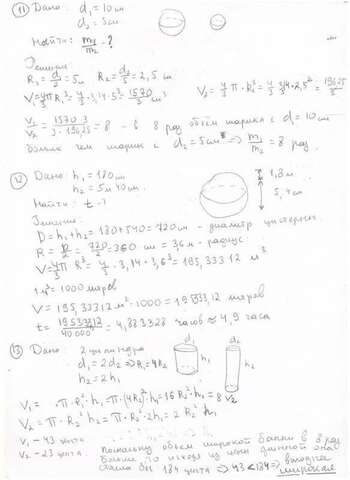 11 Дано: d₁ = 10 см
d₂ = 5 см
Найти: m₁/m₂ - ?
Решение:
R₁ = d₁/2 = 5 см R₂ = d₂/2 = 2,5 см
V₁ = 4/3 π R₁³ = 4/3 · 3,14 · 5³ = 1570/3 см³ V₂ = 4/3 π · R₂³ = 4/3 · 3,14 · 2,5³ = 196,25/3
V₁/V₂ = 1570 · 3/3 · 196,25 = 8 - в 8 раз объём шарика с d = 10 см
больше чем шарик с d₂ = 5 см ⇒ m₁/m₂ = 8 раз.
12 Дано: h₁ = 180 см
h₂ = 5 м 40 см. 1,8 м
Найти: t - ? 5,4 м
Решение:
D = h₁ + h₂ = 180 + 540 = 720 см - диаметр цистерны.
R = D/2 = 720/2 = 360 см = 3,6 м - радиус.
V = 4/3 π R³ = 4/3 · 3,14 · 3,6³ = 195,33312 м³
1 м³ = 1000 литров
V = 195,33312 м³ · 1000 = 195333,12 литров
t = 195333,12/40000 = 4,883328 часов ≈ 4,9 часа
13 Дано: 2 цилиндра d₁ d₂
d₁ = 2d₂ ⇒ R₁ = 4R₂ h₁ h₂
h₂ = 2h₁
V₁ = π · R₁² · h₁ = π · (4R₂)² · h₁ = 16 R₂² h₁ = 8 V₂
V₂ = π · R₂² h₂ = π · R₂² · 2h₁ = 2 R₂² h₁
V₁ - 43 цента Поскольку объём широкой банки в 8 раз
V₂ - 23 цента. больше, то исходя из цены длинной она
была бы 184 цента ⇒ 43 < 184 ⇒ выгодна
широкая